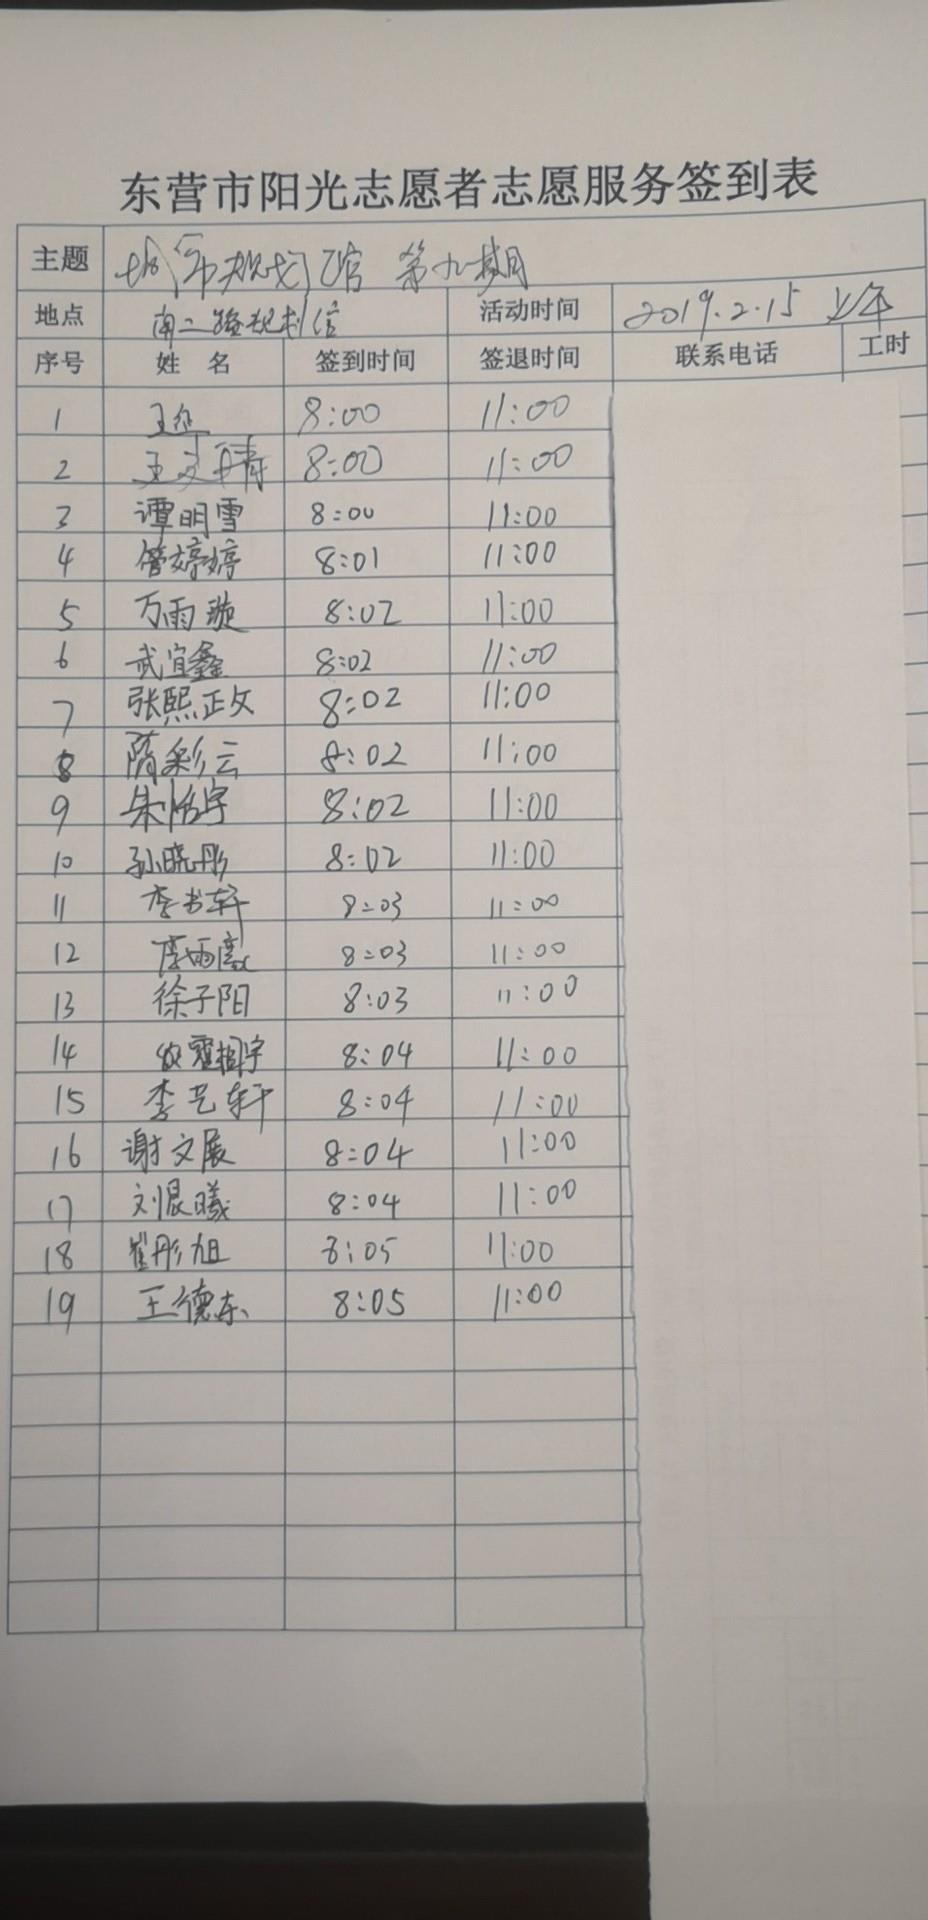 东营市阳光志愿者志愿服务签到表
主题 城市规划馆 第九期
地点 南二路规划馆 活动时间 2019.2.15 上午
序号 姓 名 签到时间 签退时间 联系电话 工时
1 8:00 11:00
2 王文清 8:00 11:00
3 谭明雪 8:00 11:00
4 管婷婷 8:01 11:00
5 万雨璇 8:02 11:00
6 武宜鑫 8:02 11:00
7 张熙政 8:02 11:00
8 隋彩云 8:02 11:00
9 朱怡宇 8:02 11:00
10 孙晓彤 8:02 11:00
11 李书轩 8:03 11:00
12 李雨 8:03 11:00
13 徐子阳 8:03 11:00
14 8:04 11:00
15 李艺轩 8:04 11:00
16 谢文展 8:04 11:00
17 刘晨曦 8:04 11:00
18 崔彤旭 8:05 11:00
19 王德东 8:05 11:00